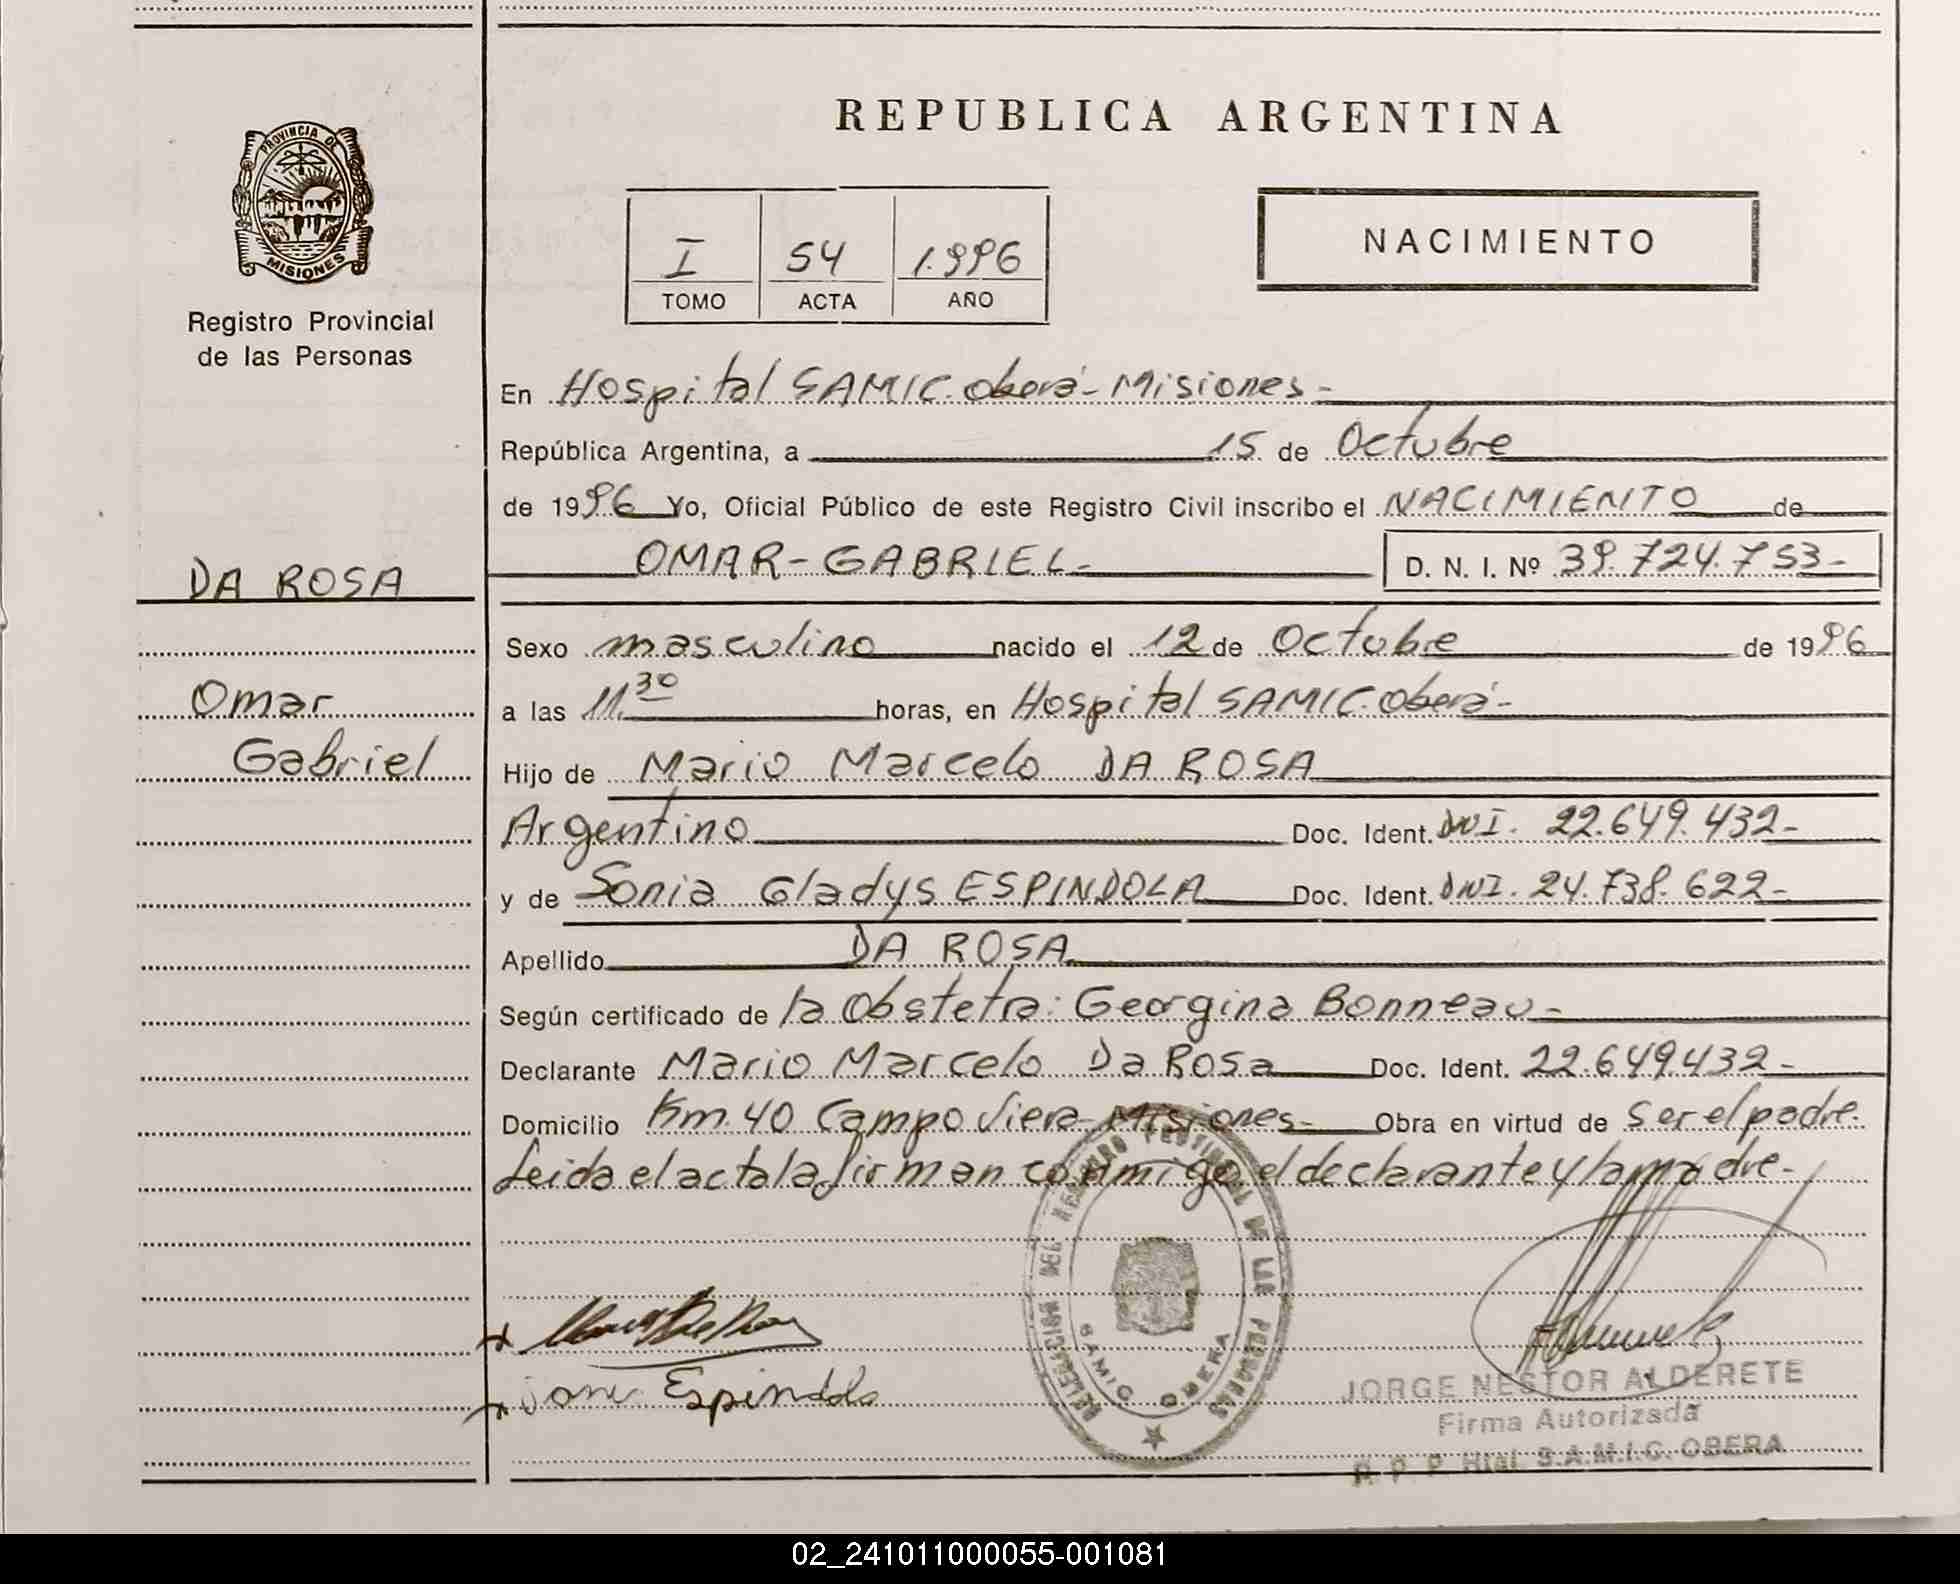 PROVINCIA DE
MISIONES
Registro Provincial
de las Personas
DA ROSA
Omar
Gabriel
REPUBLICA ARGENTINA
I 54 1.996
TOMO ACTA AÑO
NACIMIENTO
En Hospital SAMIC. Oberá - Misiones -
República Argentina, a 15 de Octubre
de 1996 Yo, Oficial Público de este Registro Civil inscribo el NACIMIENTO de
OMAR - GABRIEL - D. N. I. Nº 39.724.753 -
Sexo masculino nacido el 12 de Octubre de 1996
a las 11.30 horas, en Hospital SAMIC. Oberá -
Hijo de Mario Marcelo DA ROSA
Argentino Doc. Ident. DNI. 22.649.432 -
y de Sonia Gladys ESPINDOLA Doc. Ident. DNI. 24.738.622 -
Apellido DA ROSA
Según certificado de la Obstetra: Georgina Bonneau -
Declarante Mario Marcelo Da Rosa Doc. Ident. 22.649.432 -
Domicilio Km. 40 Campo Viera - Misiones - Obra en virtud de ser el padre.
Leida el acta la firman conmigo el declarante y la madre -
DELEGACION DEL REGISTRO PROVINCIAL DE LAS PERSONAS
SAMIC OBERA
Espindola
JORGE NESTOR ALDERETE
Firma Autorizada
R. P. P. Htal. S.A.M.I.C. OBERA
02_241011000055-001081